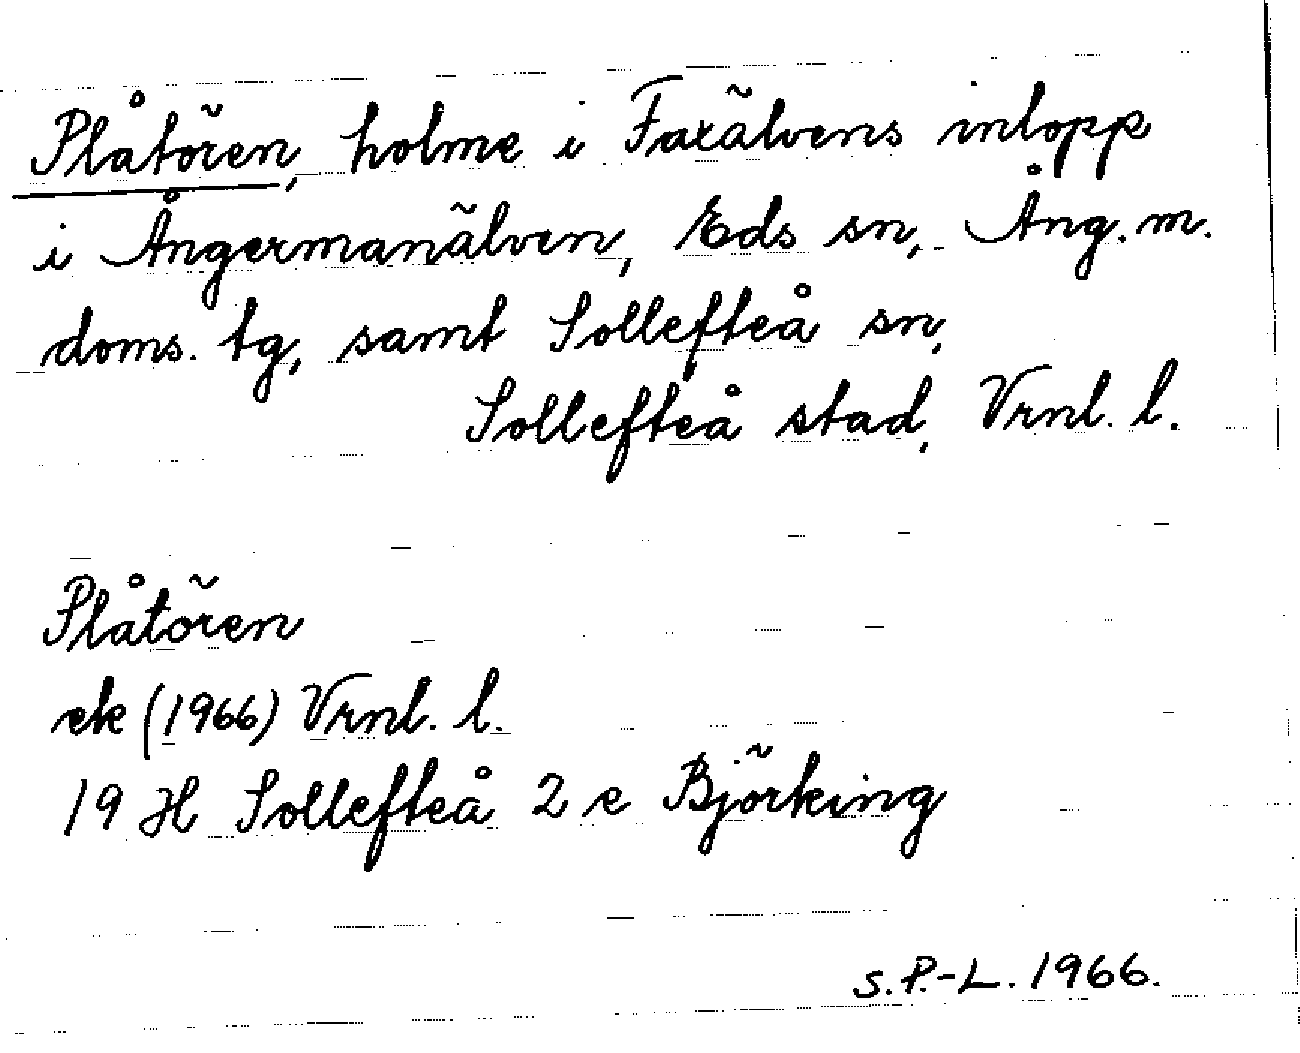 Plåtören, holme i Faxälvens inlopp
i Ångermanälven, Eds sn, Ång. m.
doms. tg, samt Sollefteå sn,
Sollefteå stad, Vrnl. l.
Plåtören
ek (1966) Vrnl. l.
19 H Sollefteå 2 e Björking
S. P.-L. 1966.